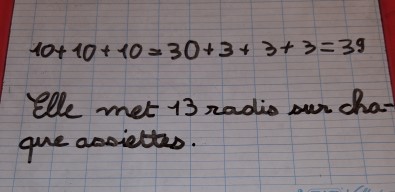 10+10+10=30+3+3+3=39
Elle met 13 radis sur cha-
que assiettes.